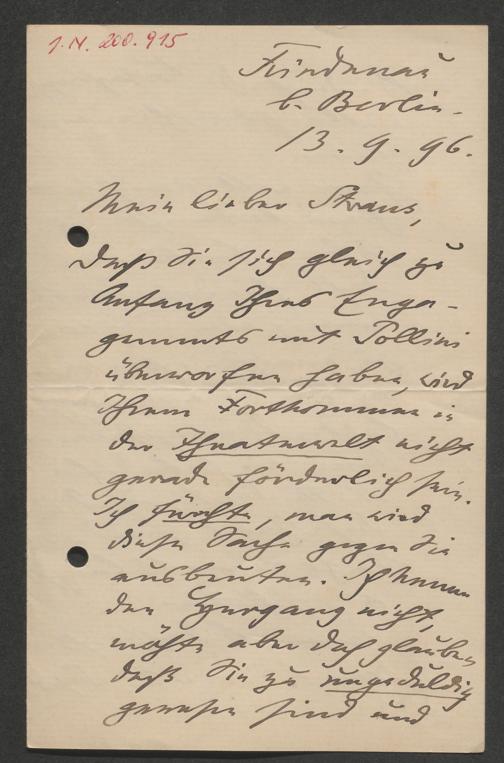 J. N. 200.915
Friedenau
b. Berlin.
13. 9. 96.
Mein lieber Straus,
Daß Sie sich gleich zu
Anfang Ihres Enga-
gements mit Pollini
überworfen haben, wird
Ihrem Fortkommen in
der Theaterwelt nicht
gerade förderlich sein.
Ich fürchte, man wird
diese Sache gegen Sie
ausbeuten. Ich kenne
den Hergang nicht,
möchte aber doch glauben
daß Sie zu ungeduldig
gewesen sind und